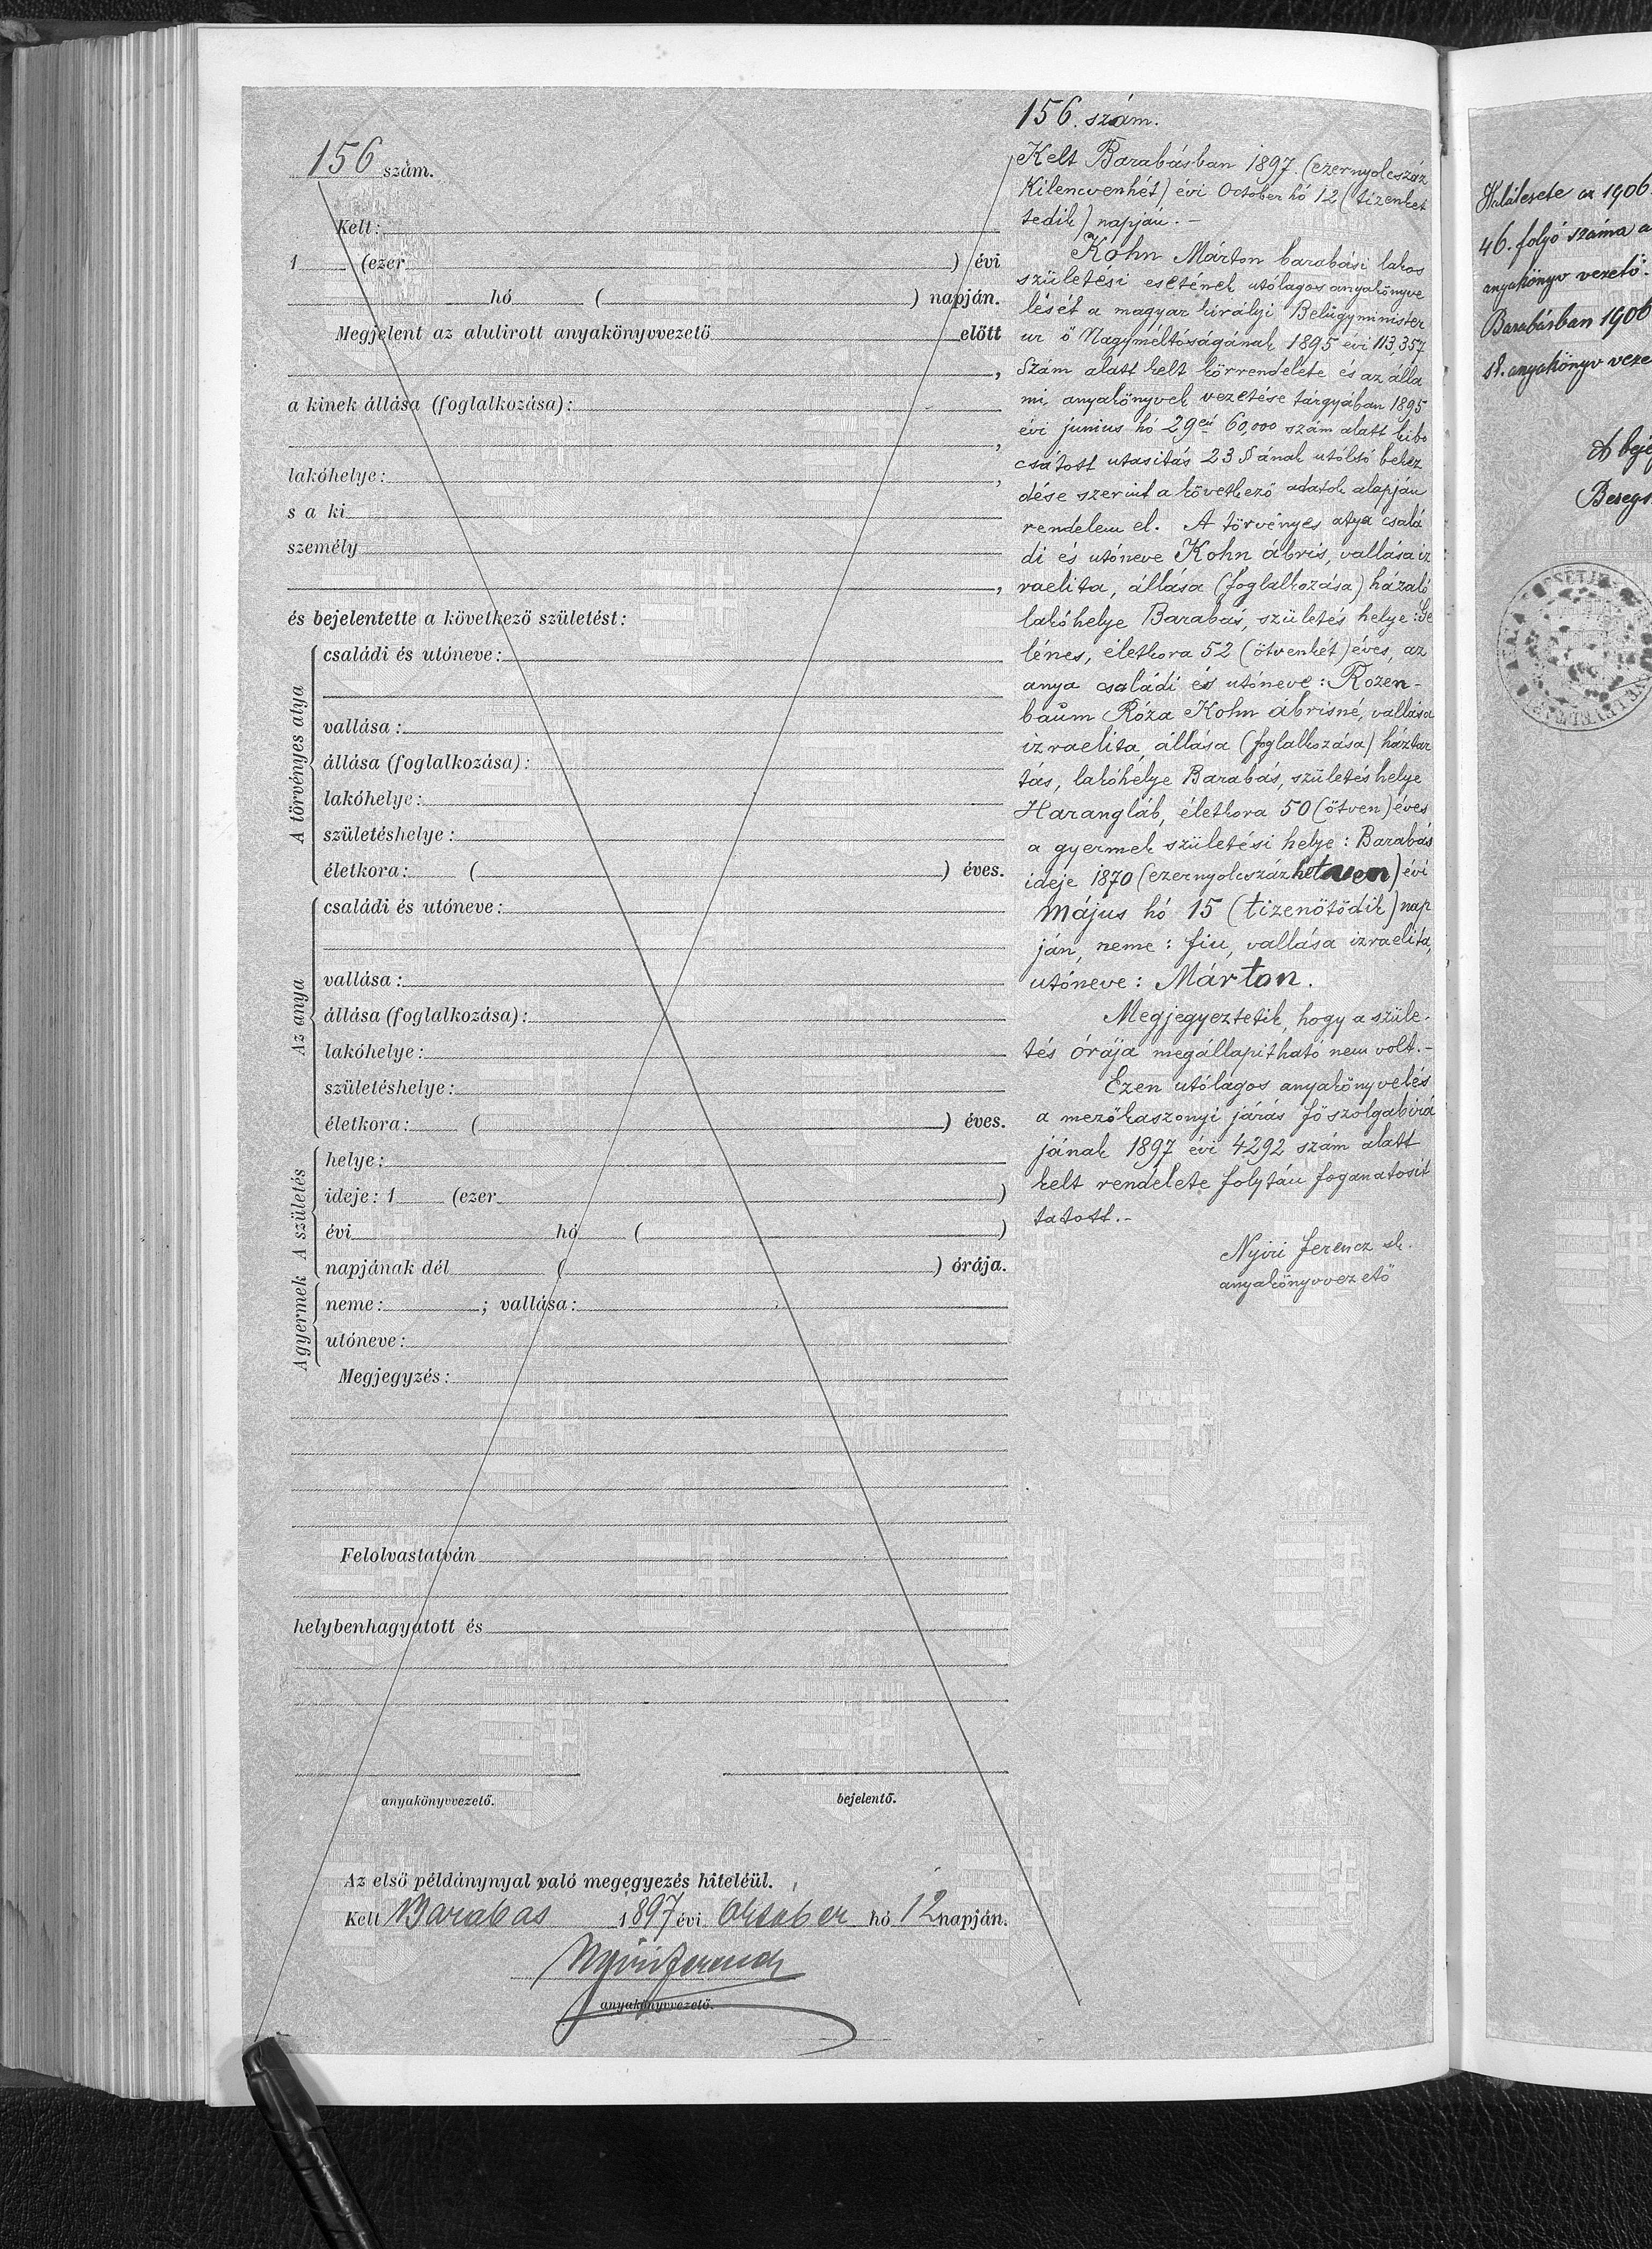 156 szám.
Kelt:
1 (ezer ) évi
hó ( ) napján.
Megjelent az alulirott anyakönyvvezető előtt
,
a kinek állása (foglalkozása):
,
lakóhelye: ,
s a ki
személy
,
és bejelentette a következő születést:
A törvényes atya
családi és utóneve:
vallása:
állása (foglalkozása):
lakóhelye:
születéshelye:
életkora: ( ) éves.
Az anya
családi és utóneve:
vallása:
állása (foglalkozása):
lakóhelye:
születéshelye:
életkora: ( ) éves.
A születés
helye:
ideje: 1 (ezer )
évi hó ( )
napjának dél ( ) órája.
A gyermek
neme: ; vallása:
utóneve:
Megjegyzés:
Felolvastatván
helybenhagyatott és
anyakönyvvezető. bejelentő.
Az első példánynyal való megegyezés hiteléül.
Kelt Barabas 1897 évi Oktober hó 12 napján.
Nyiri Ferencz
anyakönyvvezető.
156. szám.
Kelt Barabásban 1897. (ezernyolcszáz
Kilencvenhét) évi October hó 12 (tizenket
tedik) napján. -
Kohn Márton barabási lakos
születési esetének utólagos anyakönyve
lését a magyar királyi Belügyminister
ur ő Nagyméltóságának 1895 évi 113,357
Szám alatt kelt körrendelete és az álla
mi anyakönyvek vezetése tárgyában 1895
évi junius hó 29én 60,000 szám alatt kibo
csátott utasitás 23 § ának utólsó bekez
dése szerint a következő adatok alapján
rendelem el. A törvényes atya csalá
di és utóneve Kohn ábris, vallása iz
raelita, állása (foglalkozása) házaló
lakóhelye Barabás, születés helye: Ge
lénes, életkora 52 (ötvenkét) éves, az
anya családi és utóneve: Rozen-
baum Róza Kohn abrisné, vallása
izraelita állása (foglalkozása) háztar
tás, lakóhelye Barabás, születés helye
Harangláb, életkora 50 (ötven) éves
a gyermek születési helye: Barabás
ideje 1870 (ezernyolcszázhetven) évi
Május hó 15 (tizenötödik) nap
ján, neme: fiu, vallása izraelita,
utóneve: Márton.
Megjegyeztetik, hogy a szüle-
tés órája megállapitható nem volt. -
Ezen utólagos anyakönyvelés
a mezőkaszonyi járás főszolgabirá
jának 1897 évi 4292 szám alatt
kelt rendelete folytán foganatosit
tatott. -
Nyiri Ferencz sk.
anyakönyvvezető
Halálesete az 1906
46. folyó száma a
anyakönyv vezető.
Barabásban 1906
sk. anyakönyv veze
A bejeg
Beregs